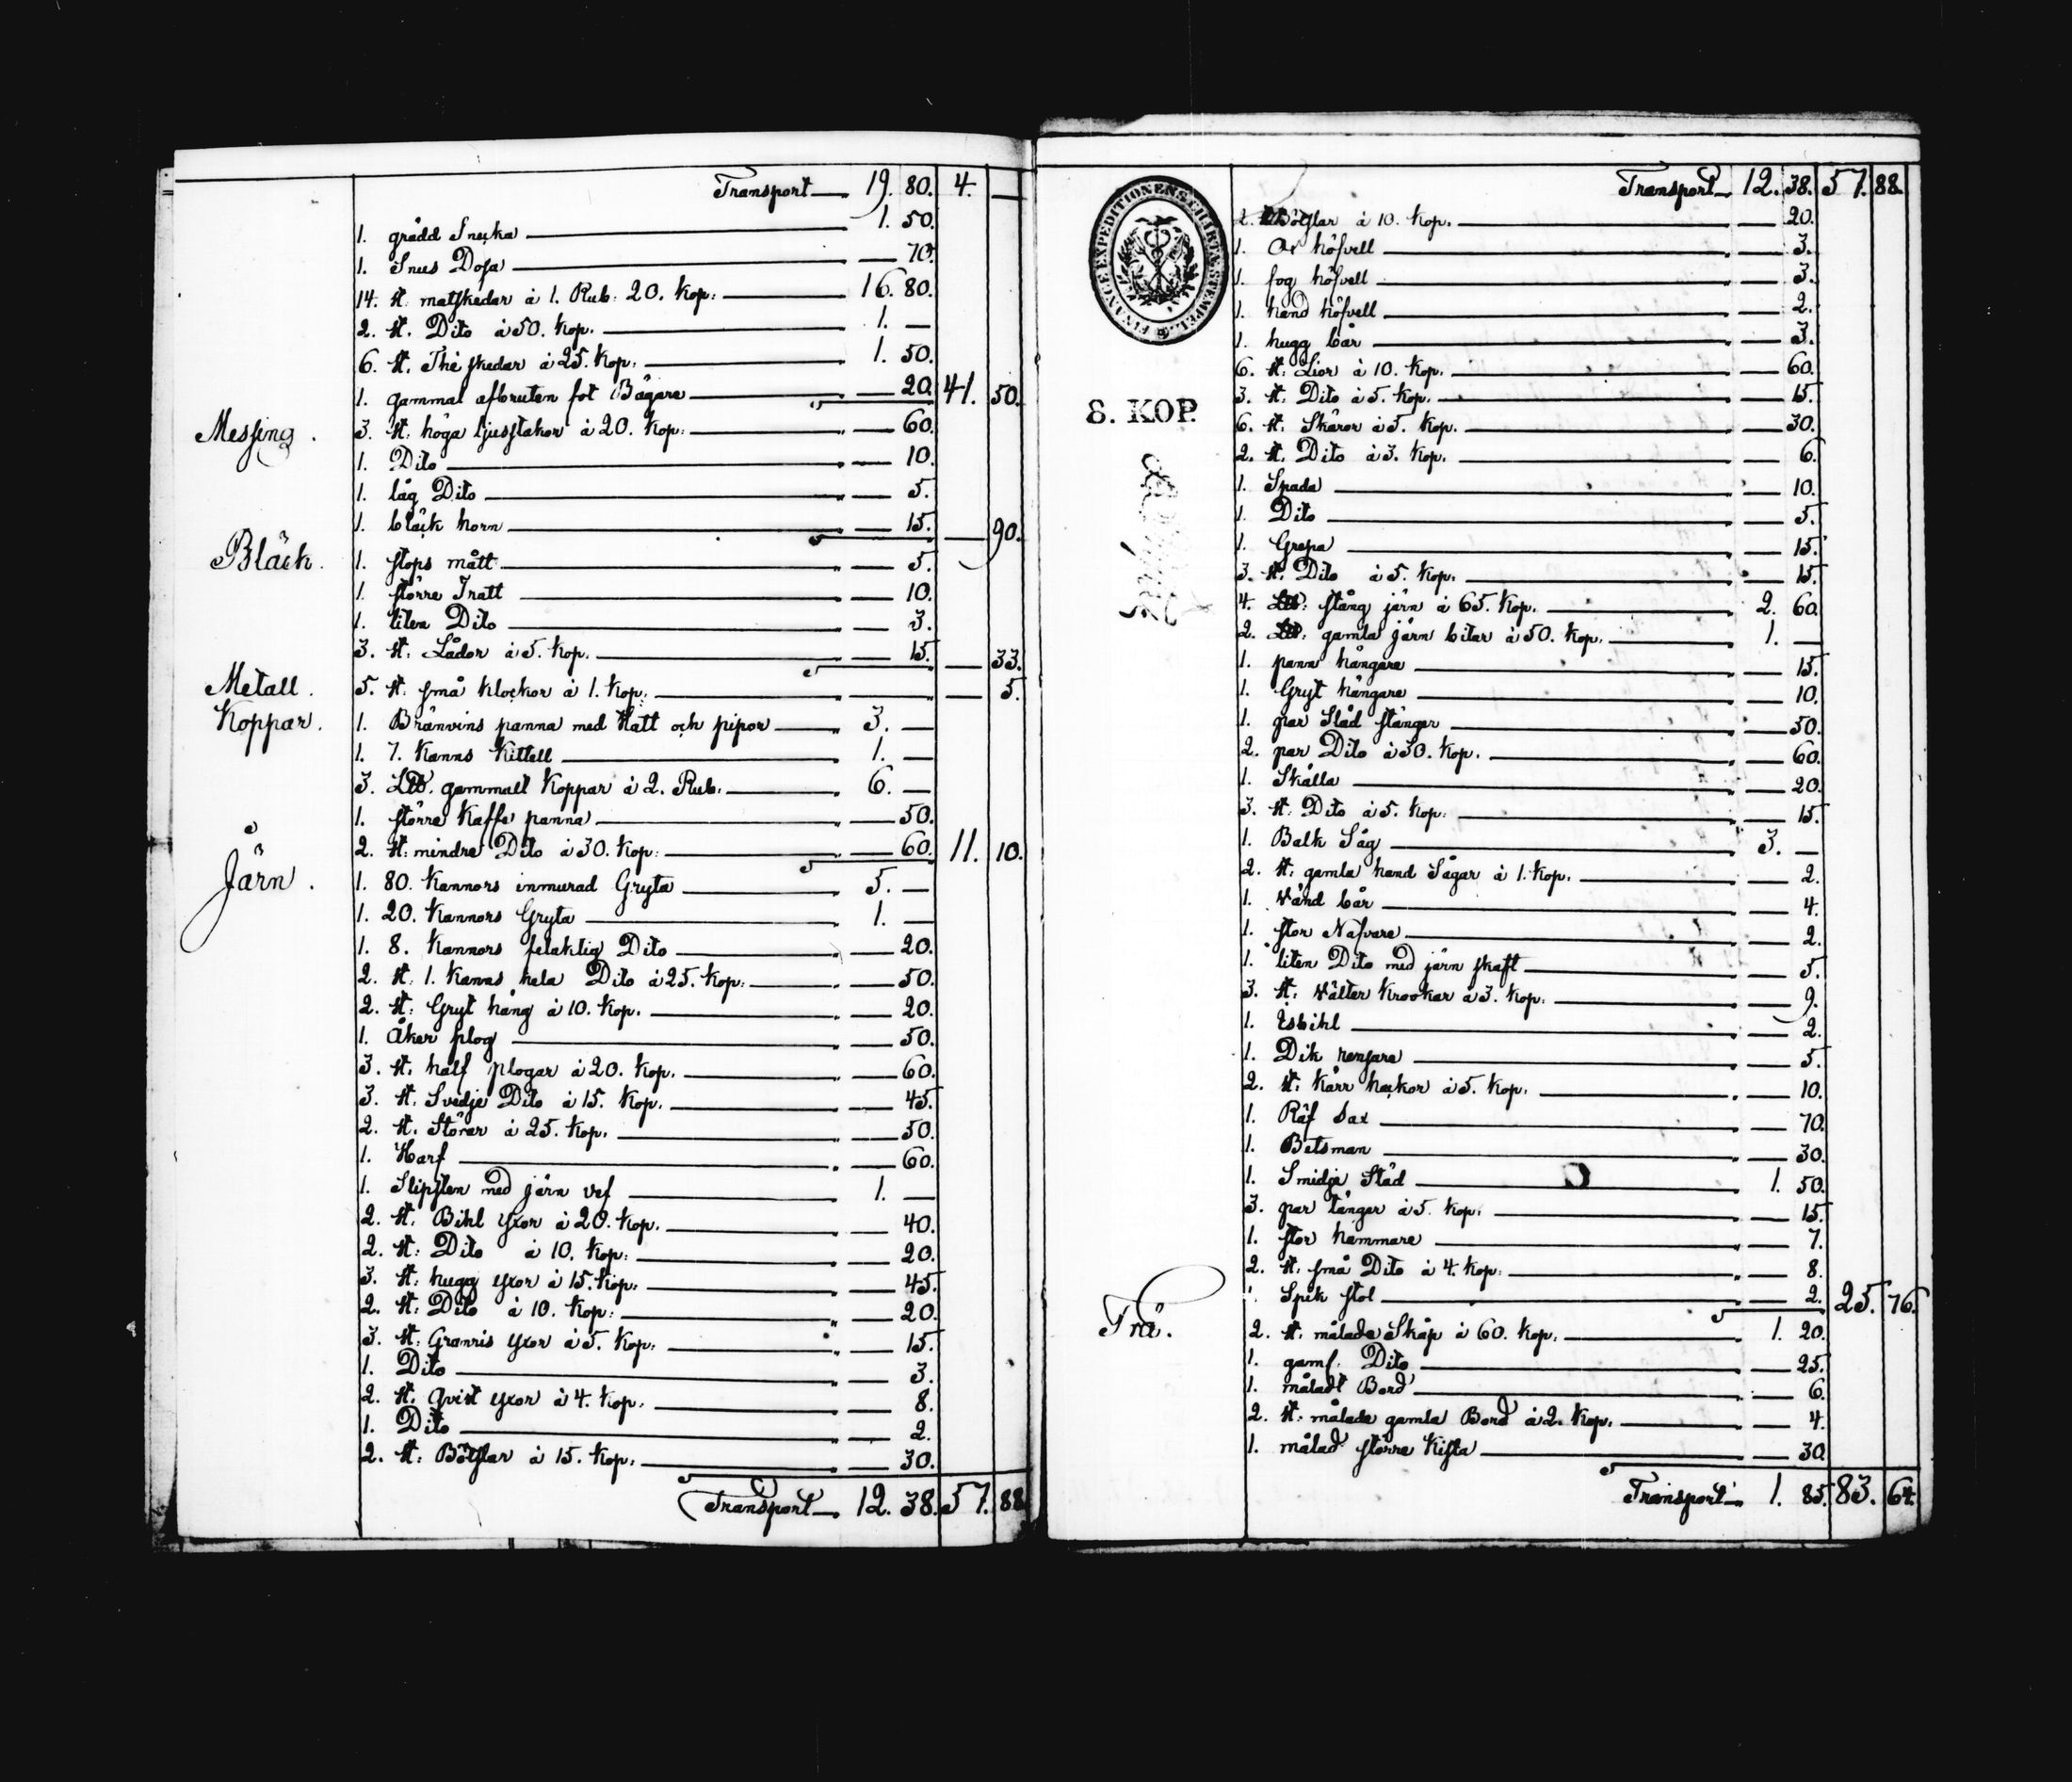 Transport 19. 80. 4. —
1. grädd Snecka 1. 50.
1. Snus Dosa — 70.
14. st. matskedar à 1. Rub. 20. Kop: 16. 80.
2. st. Dito à 50. Kop. 1. —
6. st. The skedar à 25. Kop. 1. 50.
1. gammal afbruten fot Bägare — 20. 41. 50.
Messing. 3. st. höga ljusstakar à 20. Kop: — 60.
1. Dito — 10.
1. låg Dito — 5.
1. bläck horn — 15. — 90.
Bläck. 1. stops mått — 5.
1. större Tratt — 10.
1. liten Dito — 3.
3. st. Lådor à 5. Kop. — 15. — 33.
Metall. 5. st. små Klockor à 1. Kop. — 5.
Koppar. 1. Bränvins panna med Hatt och pipor 3. —
1. 7. Kanns Kittell 1. —
3. L℔. gammalt Koppar à 2. Rub. 6. —
1. större Kaffe panna — 50.
2. st. mindre Dito à 30. Kop: — 60. 11. 10.
Järn. 1. 80. Kannors inmurad Gryta 5. —
1. 20. Kannors Gryta 1. —
1. 8. Kannors felaktig Dito — 20.
2. st. 1. Kanns hela Dito à 25. Kop: — 50.
2. st. Gryt häng à 10. Kop. — 20.
1. Åker plog — 50.
3. st. half plogar à 20. Kop. — 60.
3. st. Svedje Dito à 15. Kop. — 45.
2. st. Störar à 25. Kop. — 50.
1. Harf — 60.
1. Slipsten med järn vef 1. —
2. st. Bihl yxor à 20. Kop. — 40.
2. st. Dito à 10. Kop: — 20.
3. st. hugg yxor à 15. Kop: — 45.
2. st. Dito à 10. Kop: — 20.
3. st. Granris yxor à 5. Kop. — 15.
1. Dito — 3.
2. st. Qvist yxor à 4. Kop. — 8.
1. Dito — 2.
2. st. Bötslar à 15. Kop. — 30.
Transport 12. 38. 57. 88.
FINANCE EXPEDITIONENS CHARTÆ STEMPEL
8. KOP.
Transport 12. 38. 57. 88.
2. Bötslar à 10. Kop. — 20.
1. höfvell — 3.
1. fog höfvell — 3.
1. hand höfvell — 2.
1. hugg bår — 3.
6. st. Lior à 10. Kop. — 60.
3. st. Dito à 5. Kop. — 15.
6. st. Skäror à 5. Kop. — 30.
2. st. Dito à 3. Kop. — 6.
1. Spada — 10.
1. Dito — 5.
1. Grepa — 15.
3. st. Dito à 5. Kop. — 15.
4. L℔. stång järn à 65. Kop. 2. 60.
2. L℔. gamla järn bitar à 50. Kop. 1. —
1. pann hängare — 15.
1. Gryt hängare — 10.
1. par Släd stänger — 50.
2. par Dito à 30. Kop. — 60.
1. Skålla — 20.
3. st. Dito à 5. Kop. — 15.
1. Balk Såg 3. —
2. st. gamla hand Sågar à 1. Kop. — 2.
1. vänd bår — 4.
1. stor Nafvare — 2.
1. liten Dito med järn skaft — 5.
3. st. välter Krookar à 3. Kop. — 9.
1. Isbihl — 2.
1. Dik rensare — 5.
2. st. kärr hackor à 5. Kop. — 10.
1. Räf sax — 70.
1. Betsman — 30.
1. Smidje Städ 1. 50.
3. par tänger à 5. Kop. — 15.
1. stor hammare — 7.
2. st. små Dito à 4. Kop. — 8.
1. Spik stol — 2. 25. 76.
Trä. 2. st. målade Skåp à 60. Kop. 1. 20.
1. gaml. Dito — 25.
1. måladt Bord — 6.
2. st. målade gamla Bord à 2. Kop. — 4.
1. målad större Kista — 30.
Transport 1. 85. 83. 64.